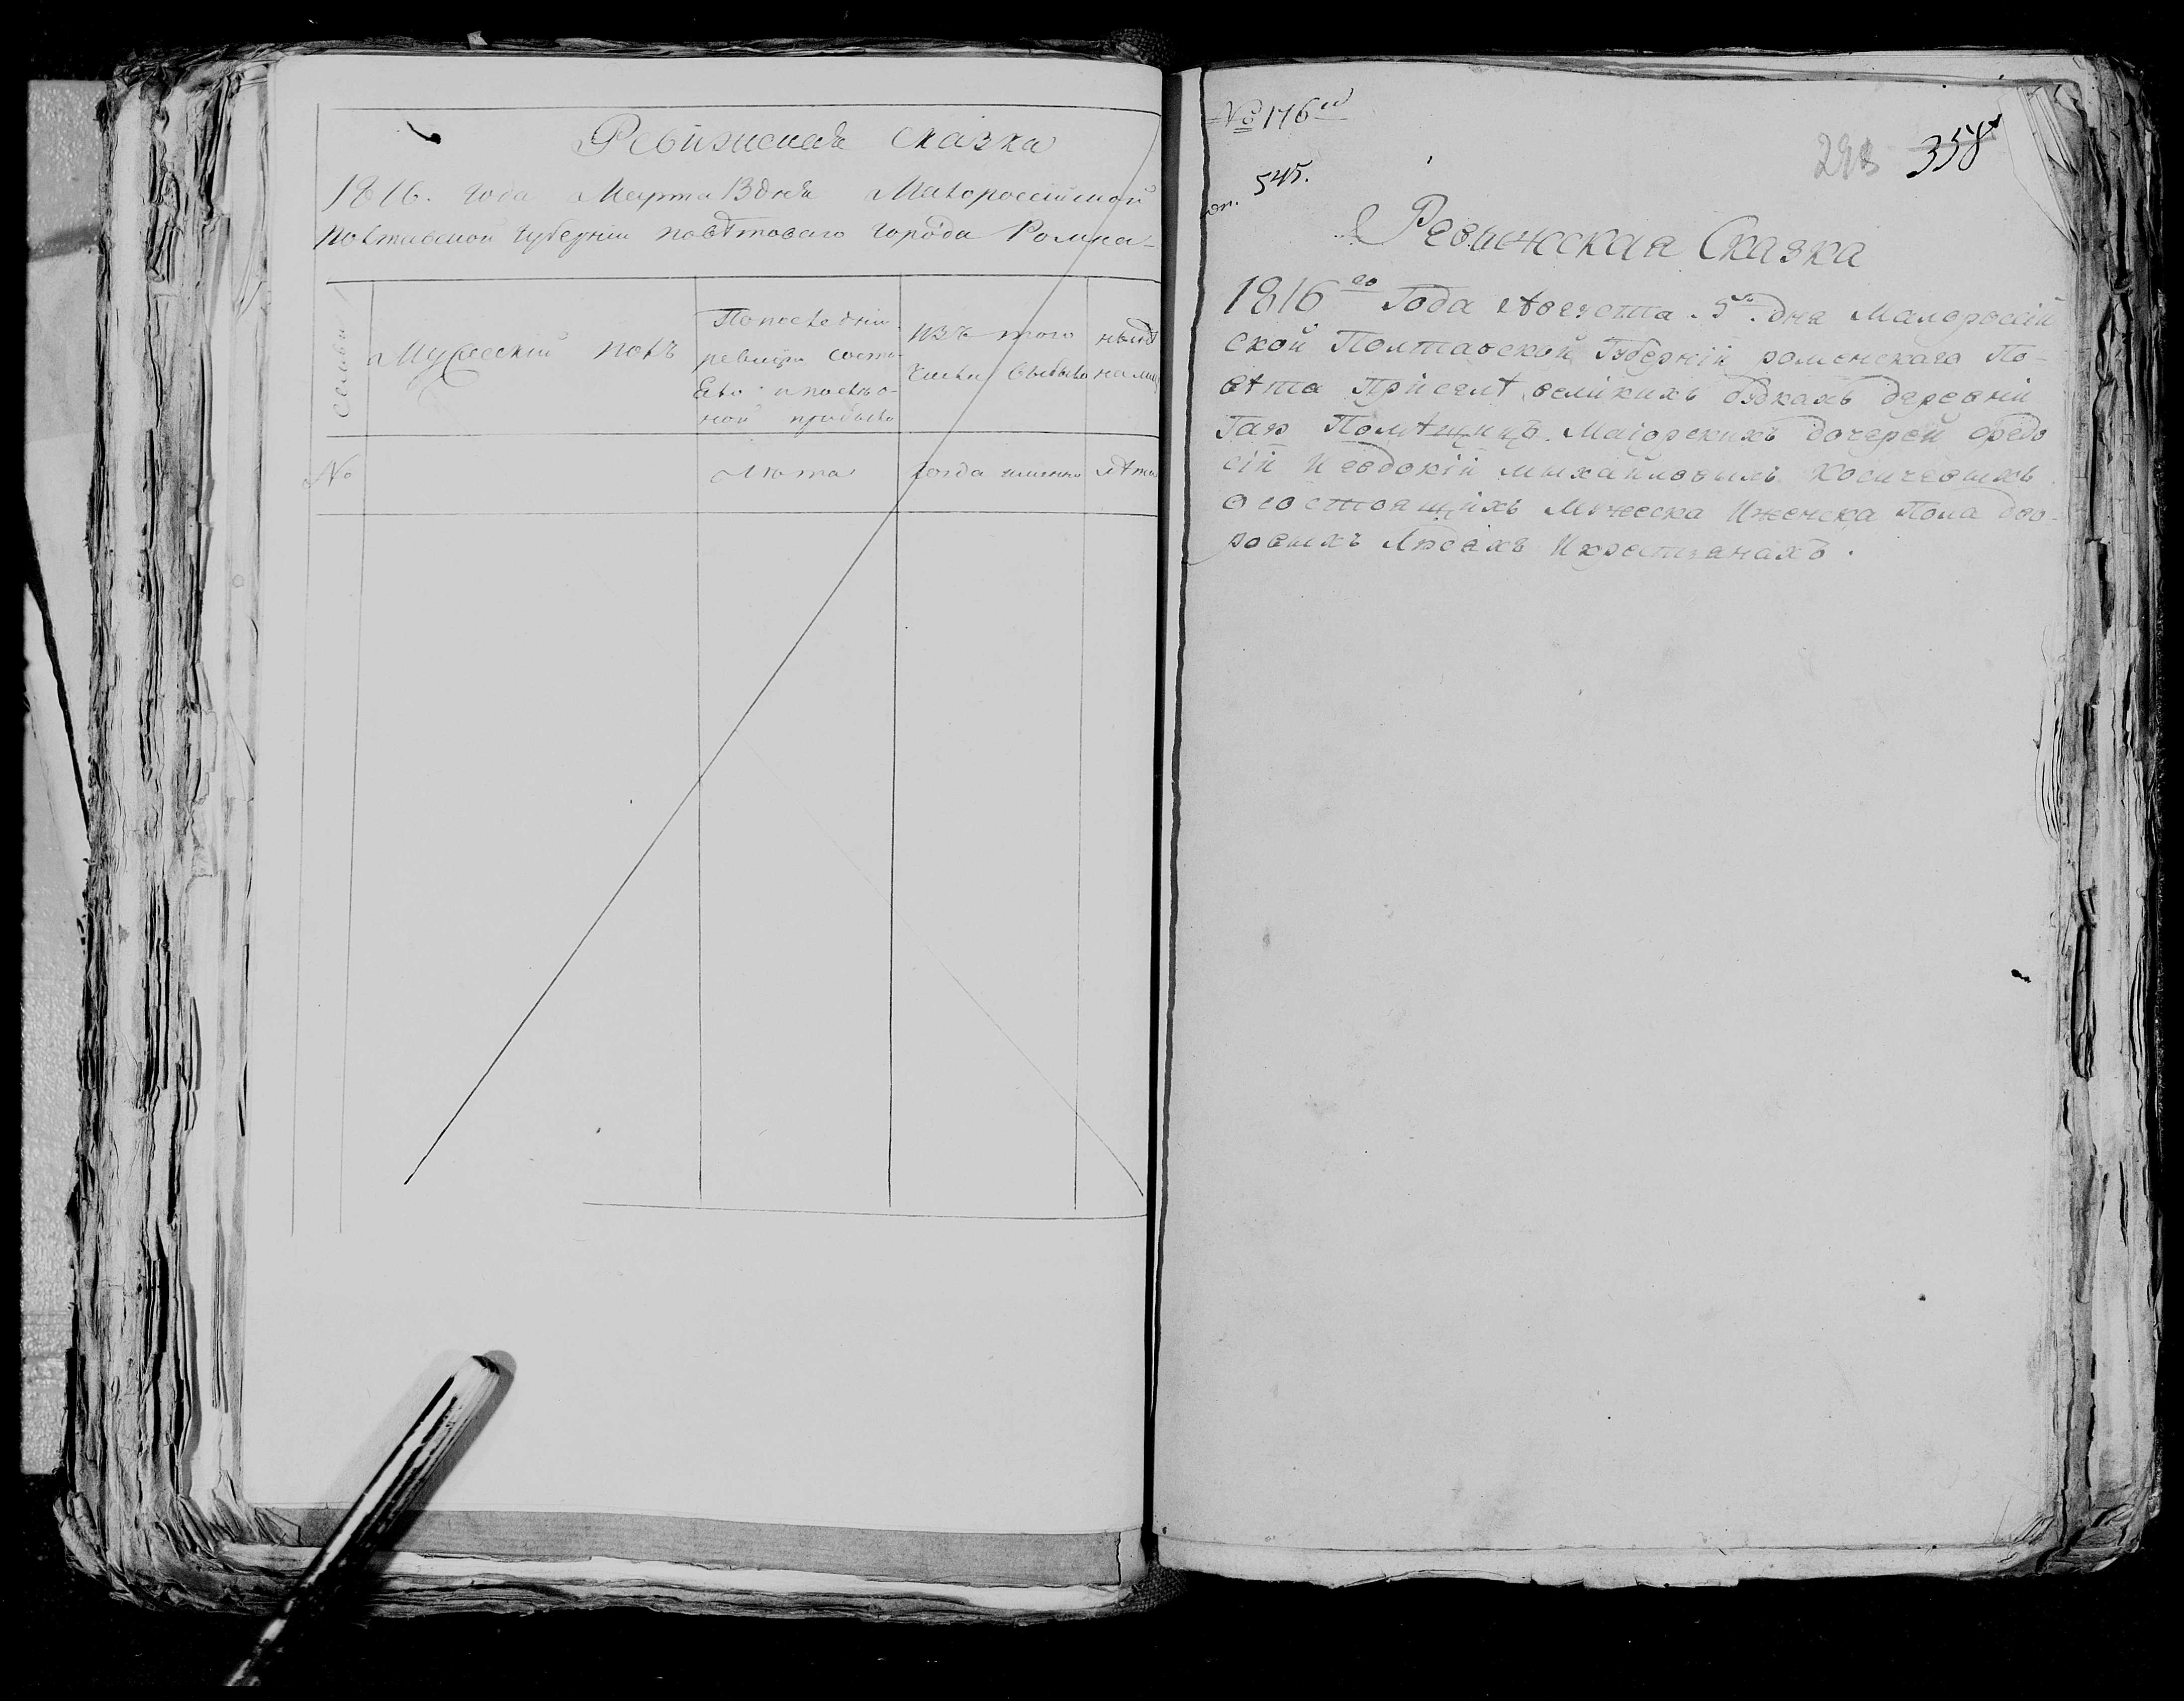 Ревижская сказка
1816. года Марта 13 дня Малороссійской
Полтавской губерніи повѣтоваго города Ромна-
Семьи
Мужескій полъ
По последней
ревизіи состо-
яло и после о-
ной прибыло
изъ того
числа выбыло
нынѣ
на ли
№
Лѣта
когда именно
лѣта
№ 176
545.
293 358
Ревижская Сказка
1816го Года Августа 5го дня Малороссій
ской Полтавской Губерніи роменскаго По-
вѣта При селѣ великихъ будкахъ деревни
Гая Помѣщицъ Маіорскихъ дочерей Федо
сіи И евдокіи михайловыхъ
о состоящихъ Мужеска И женска Пола дво-
ровыхъ Людехъ И крестьянахъ.